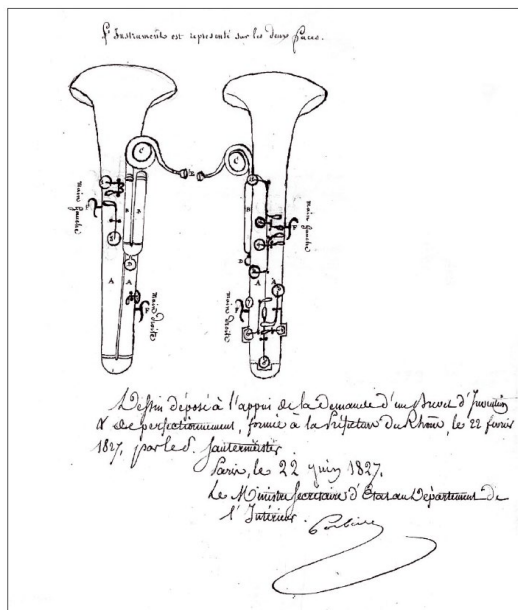 L'Instrument est representé sur les deux faces.
main gauche
main droite
main gauche
main droite
Dessin déposé à l'appui de la demande d'un Brevet d'Invention
& de perfectionnement, formée à la Préfecture du Rhône, le 22 février
1827, par le S. Sautermeister
Paris, le 22 juin 1827.
Le Ministre Secrétaire d'Etat au Département de
l'Intérieur